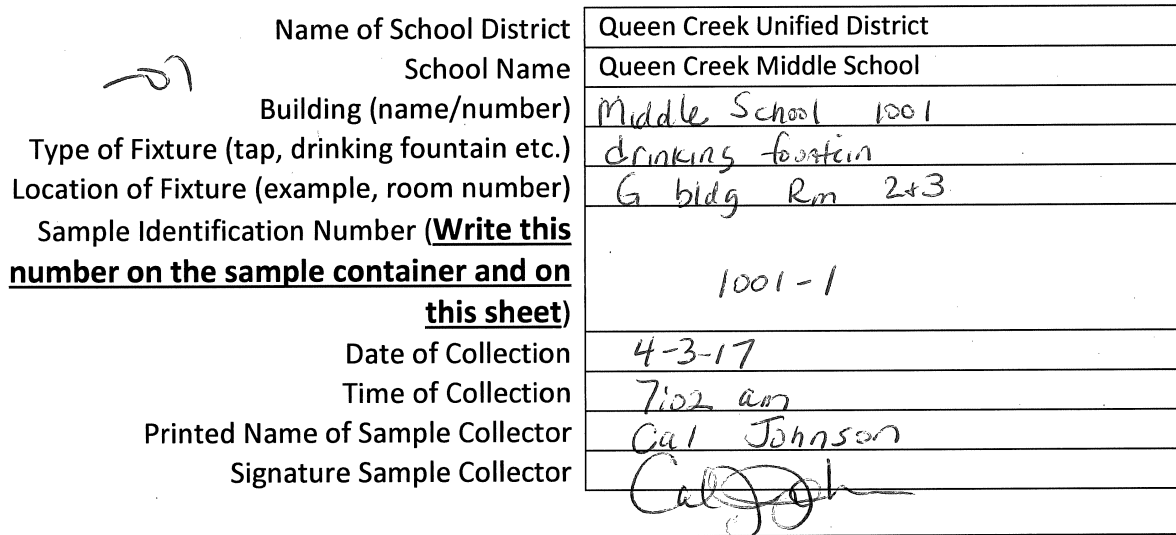 Name of School District Queen Creek Unified District
School Name Queen Creek Middle School
Building (name/number) Middle School 1001
Type of Fixture (tap, drinking fountain etc.) drinking fountain
Location of Fixture (example, room number) G bldg Rm 2+3
Sample Identification Number (Write this
number on the sample container and on
this sheet)
1001-1
Date of Collection 4-3-17
Time of Collection 7:02 am
Printed Name of Sample Collector Cal Johnson
Signature Sample Collector